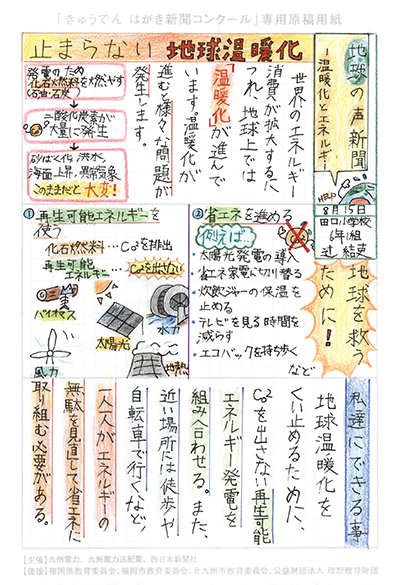 「きゅうでん はがき新聞コンクール」専用原稿用紙
地球の声新聞
ー温暖化とエネルギーー
HELP
8月15日
田口小学校
6年1組
辻 結葵
止まらない 地球温暖化
世界のエネルギー
消費が拡大するに
つれ、地球上では
「温暖化」が進んで
います。温暖化が
進むと様々な問題が
発生します。
発電のため
化石燃料を燃やす
(石油・石炭)
二酸化炭素が
大量に発生
砂ばく化、洪水、
海面上昇、異常気象
このままだと大変!
地球を救う
ために!
①再生可能エネルギーを
使う
化石燃料…CO2を排出
再生可能
エネルギー…CO2を出さない
バイオマス
太陽光
水力
風力
地熱
②省エネを進める
例えば…
・太陽光発電の導入
・省エネ家電に切り替える
・炊飯ジャーの保温を
止める
・テレビを見る時間を
減らす
・エコバックを持ち歩く
など
私達にできる事
地球温暖化を
くい止めるために、
CO2を出さない再生可能
エネルギー発電を
組み合わせる。また、
近い場所には徒歩や
自転車で行くなど、
一人一人がエネルギーの
無駄を見直して省エネに
取り組む必要がある。
【主催】九州電力、九州電力送配電、西日本新聞社
【後援】福岡県教育委員会、福岡市教育委員会、北九州市教育委員会、公益財団法人 理想教育財団